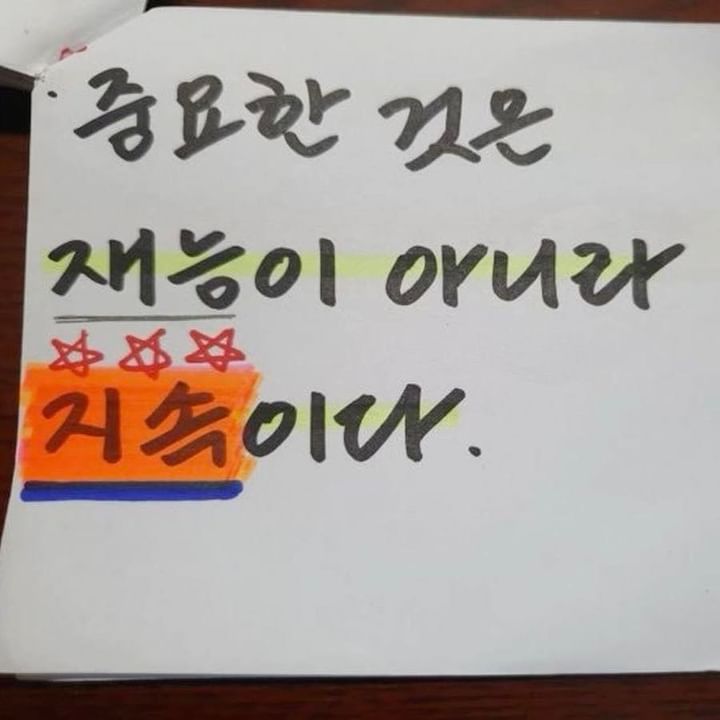 중요한 것은
재능이 아니라
지속이다.